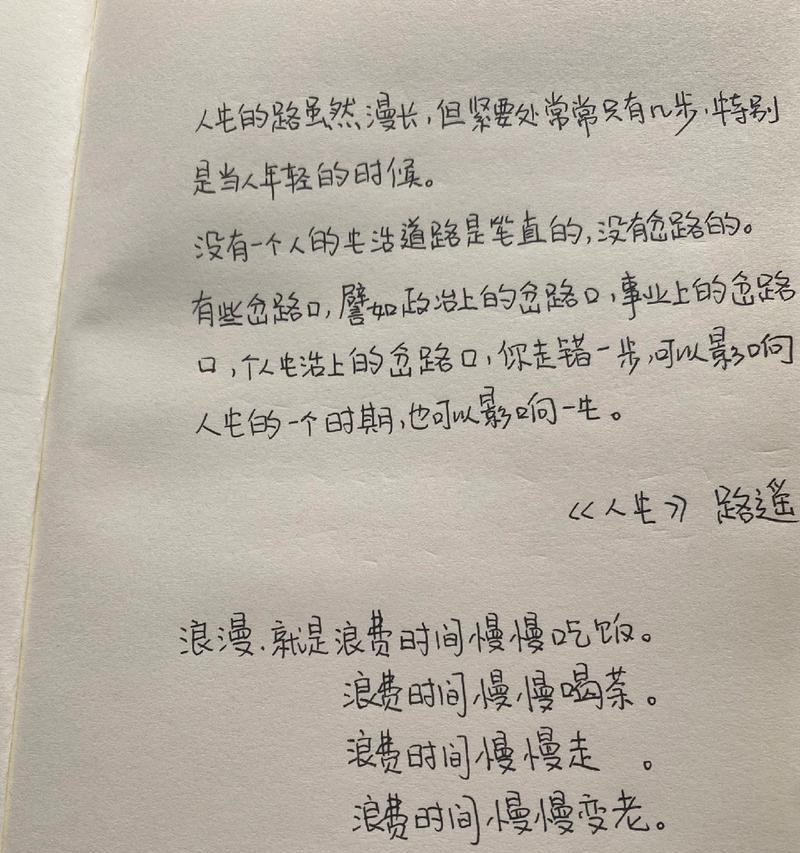 人生的路虽然漫长,但紧要处常常只有几步,特别
是当人年轻的时候。
没有一个人的生活道路是笔直的,没有岔路的。
有些岔路口,譬如政治上的岔路口,事业上的岔路
口,个人生活上的岔路口,你走错一步,可以影响
人生的一个时期,也可以影响一生。
《人生》 路遥
浪漫.就是浪费时间慢慢吃饭。
浪费时间慢慢喝茶。
浪费时间慢慢走 。
浪费时间慢慢变老。